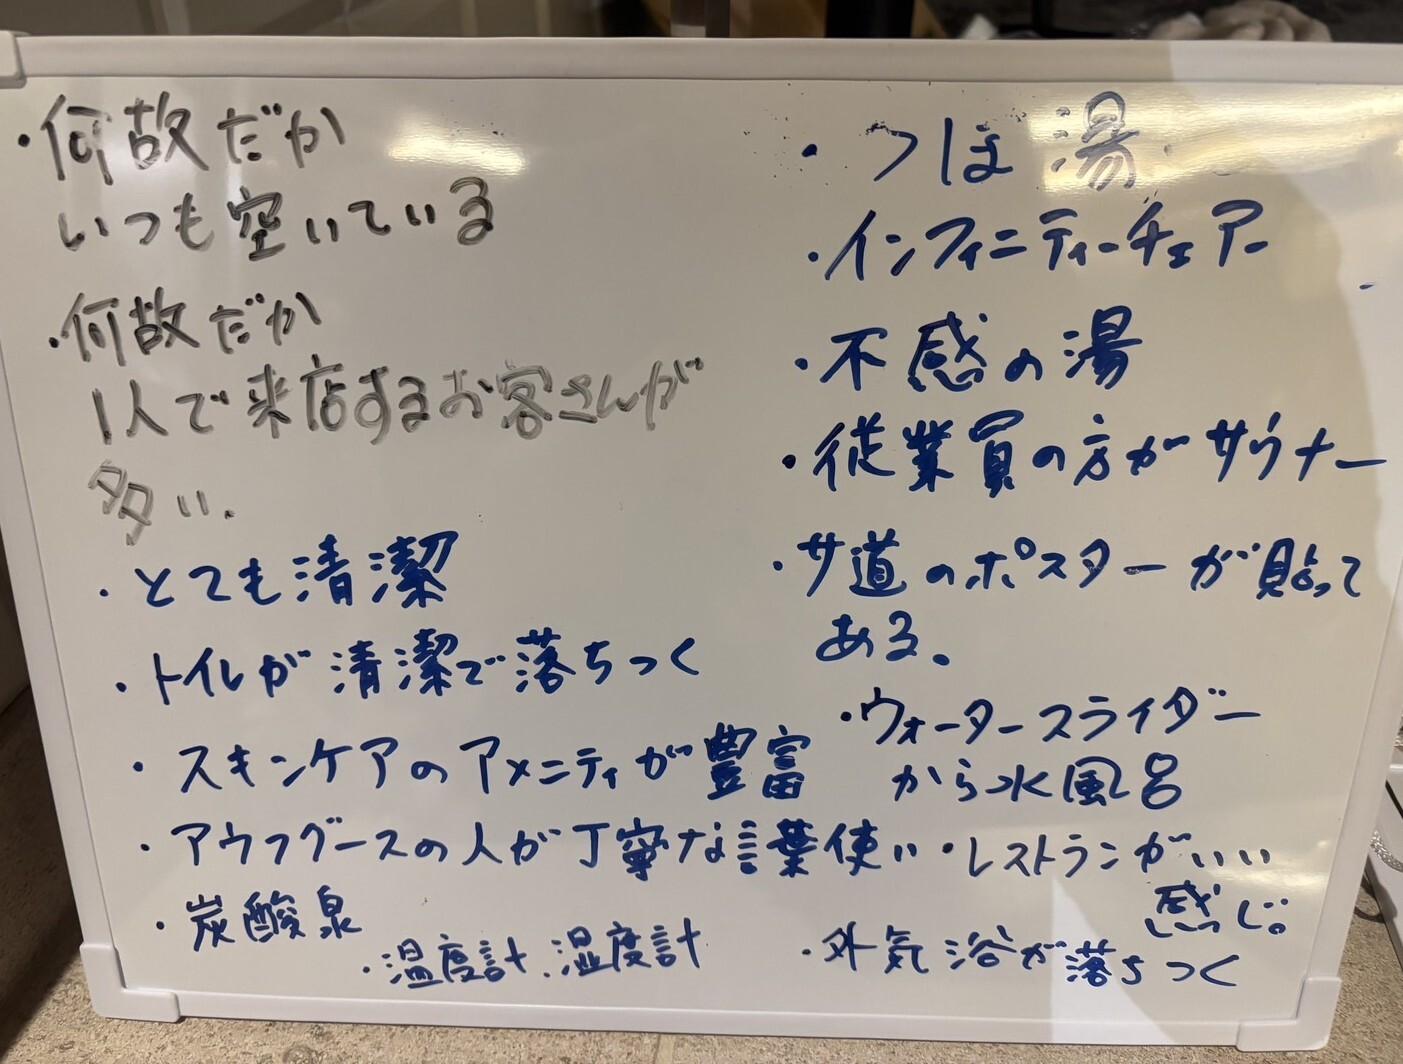 ・何故だか
いつも空いている
・何故だか
1人で来店するお客さんが
多い.
・とても清潔
・トイレが清潔で落ちつく
・スキンケアのアメニティが豊富
・アウフグースの人が丁寧な言葉使い
・炭酸泉
・温度計、湿度計
・つぼ湯
・インフィニティーチェアー
・不感の湯
・従業員の方がサウナー
・サ道のポスターが貼って
ある。
・ウォータースライダー
から水風呂
・レストランがいい
感じ。
・外気浴が落ちつく